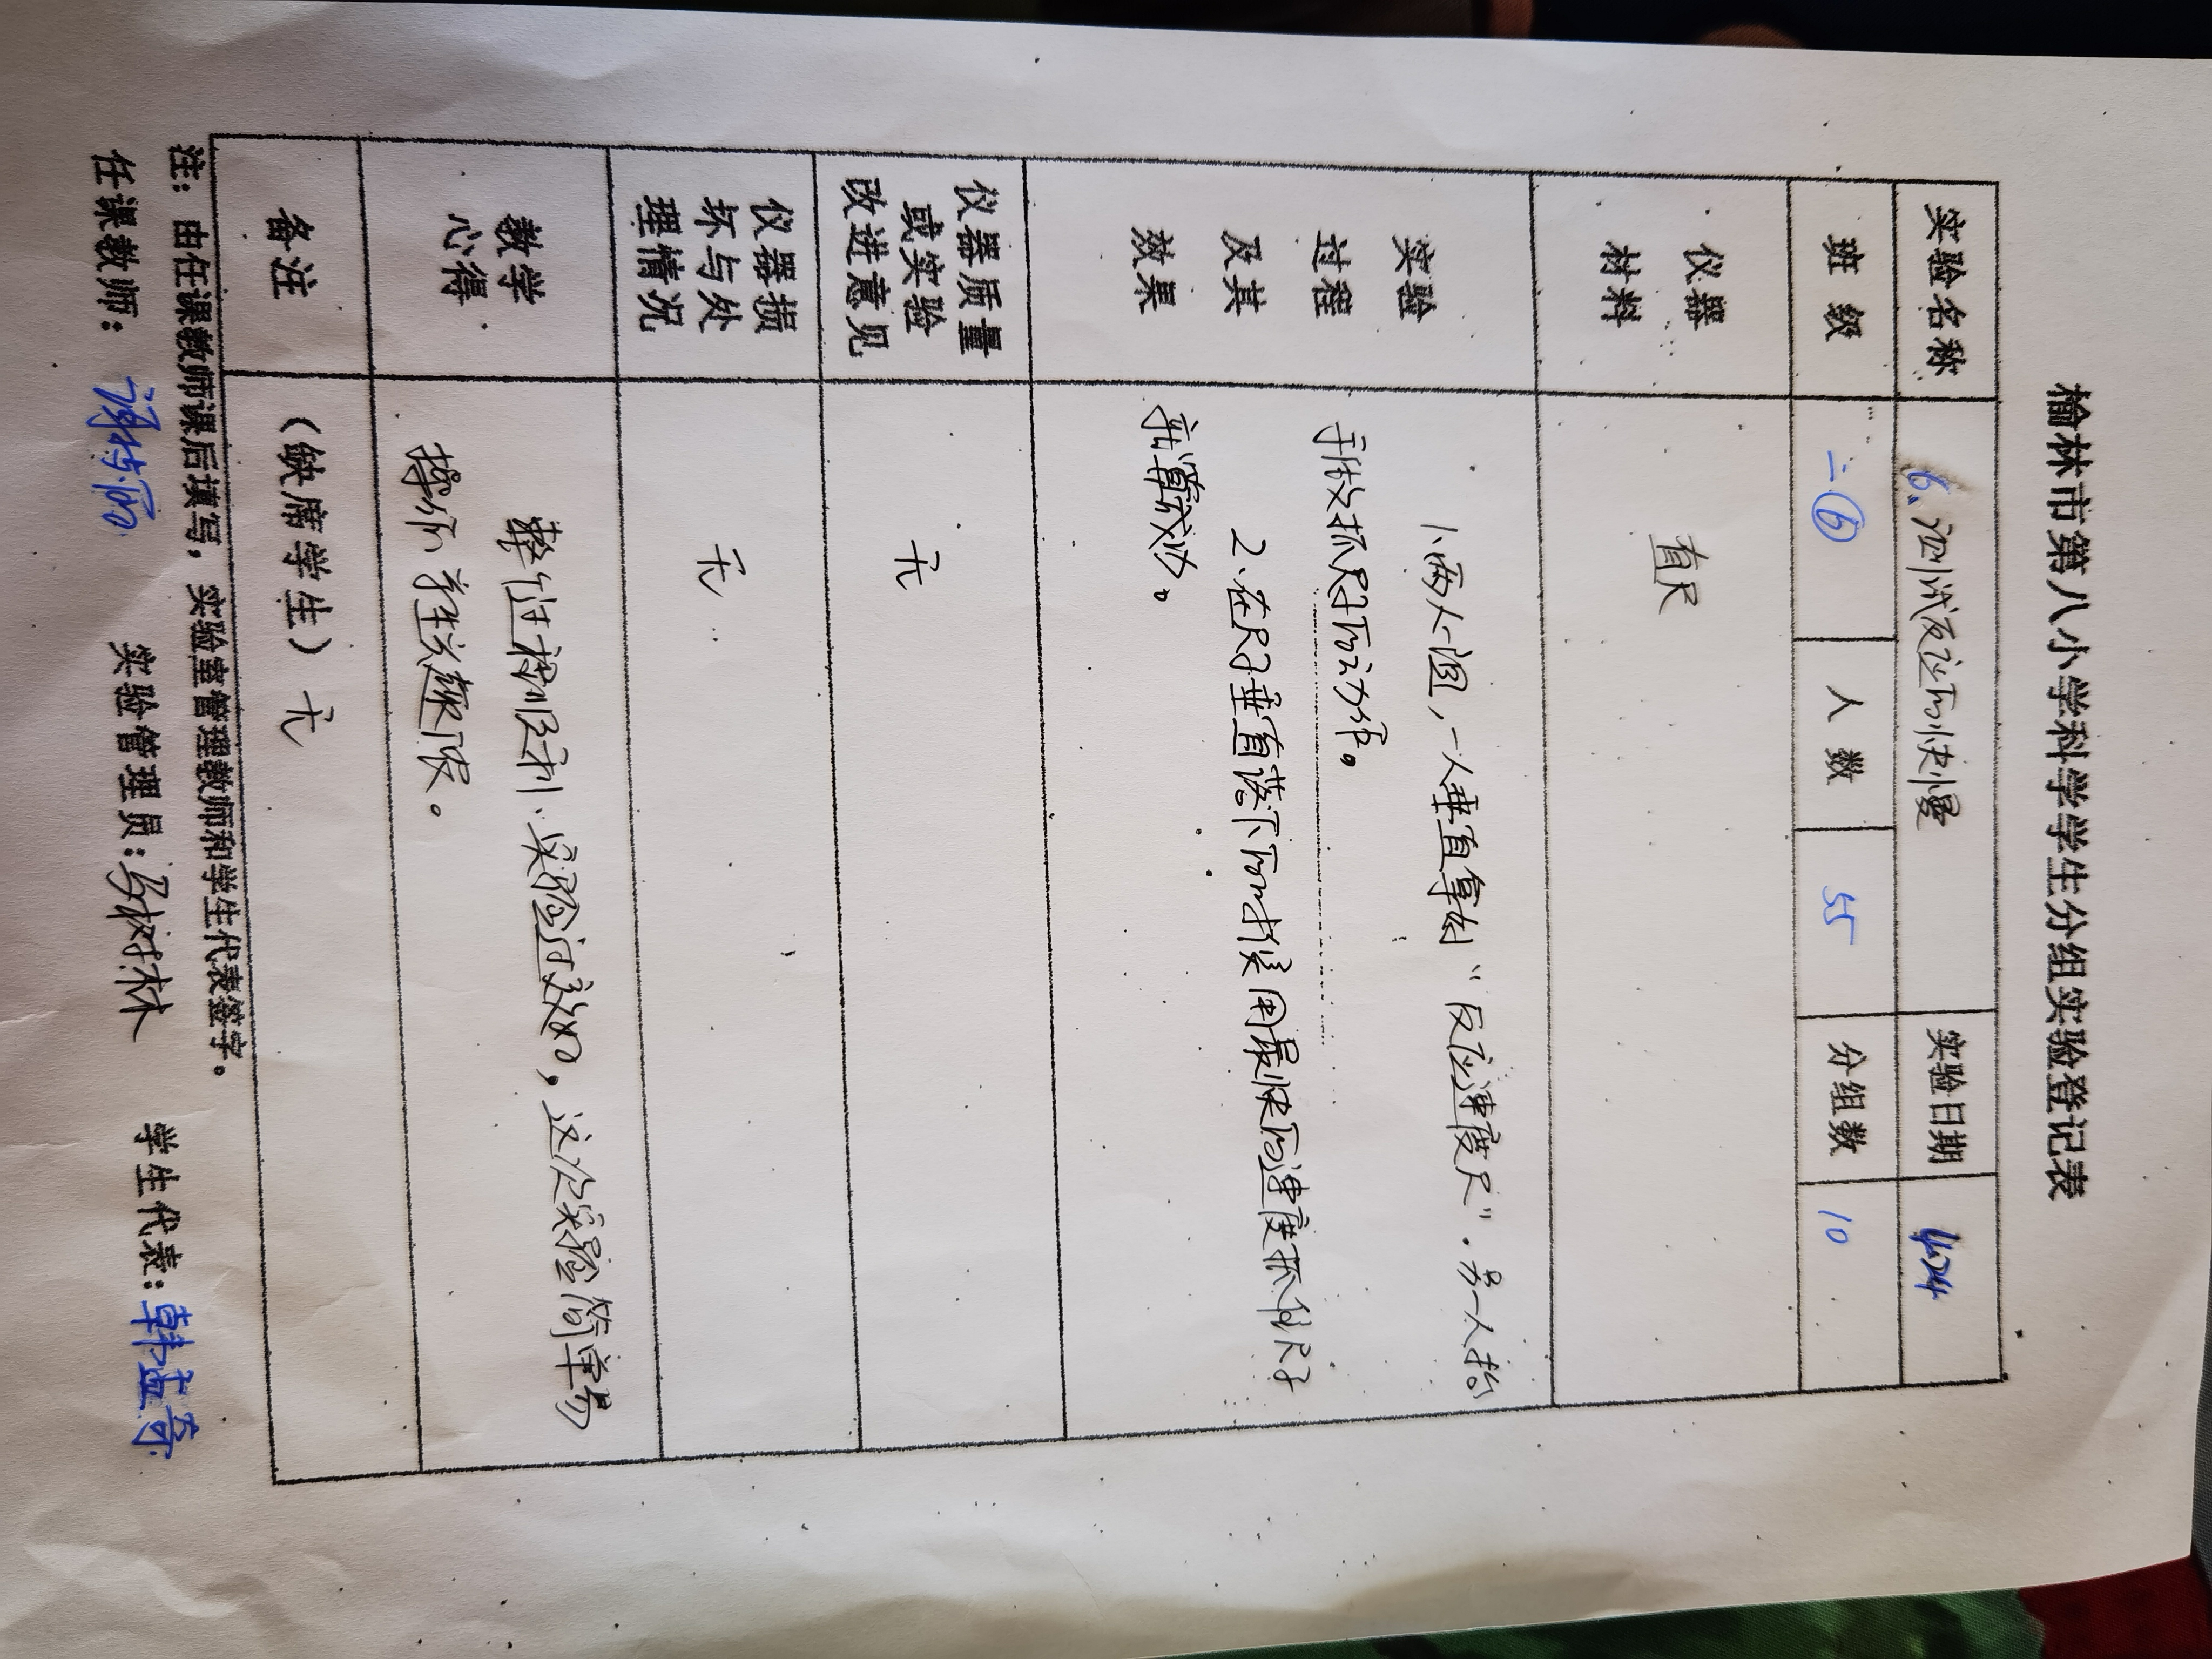 榆林市第八小学科学学生分组实验登记表
实验名称 6、测试反应的快慢 实验日期 4.24
班 级 二⑥ 人 数 55 分组数 10
仪器
材料
直尺
实验
过程
及其
效果
1、两人一组，一人垂直拿的“反应速度尺”．另一人抬
手做抓尺子的动作。
2、在尺子垂直落下的时候用最快的速度抓住尺子
就算成功。
仪器质量
或实验
改进意见
无
仪器损
坏与处
理情况
无
教学
心得
整个过程顺利．实验过效好，这个实验简单易
操作．学生兴趣浓。
备注 （缺席学生）无
注：由任课教师课后填写，实验室管理教师和学生代表签字。
任课教师： 实验管理员：马树林 学生代表：韩孟奇